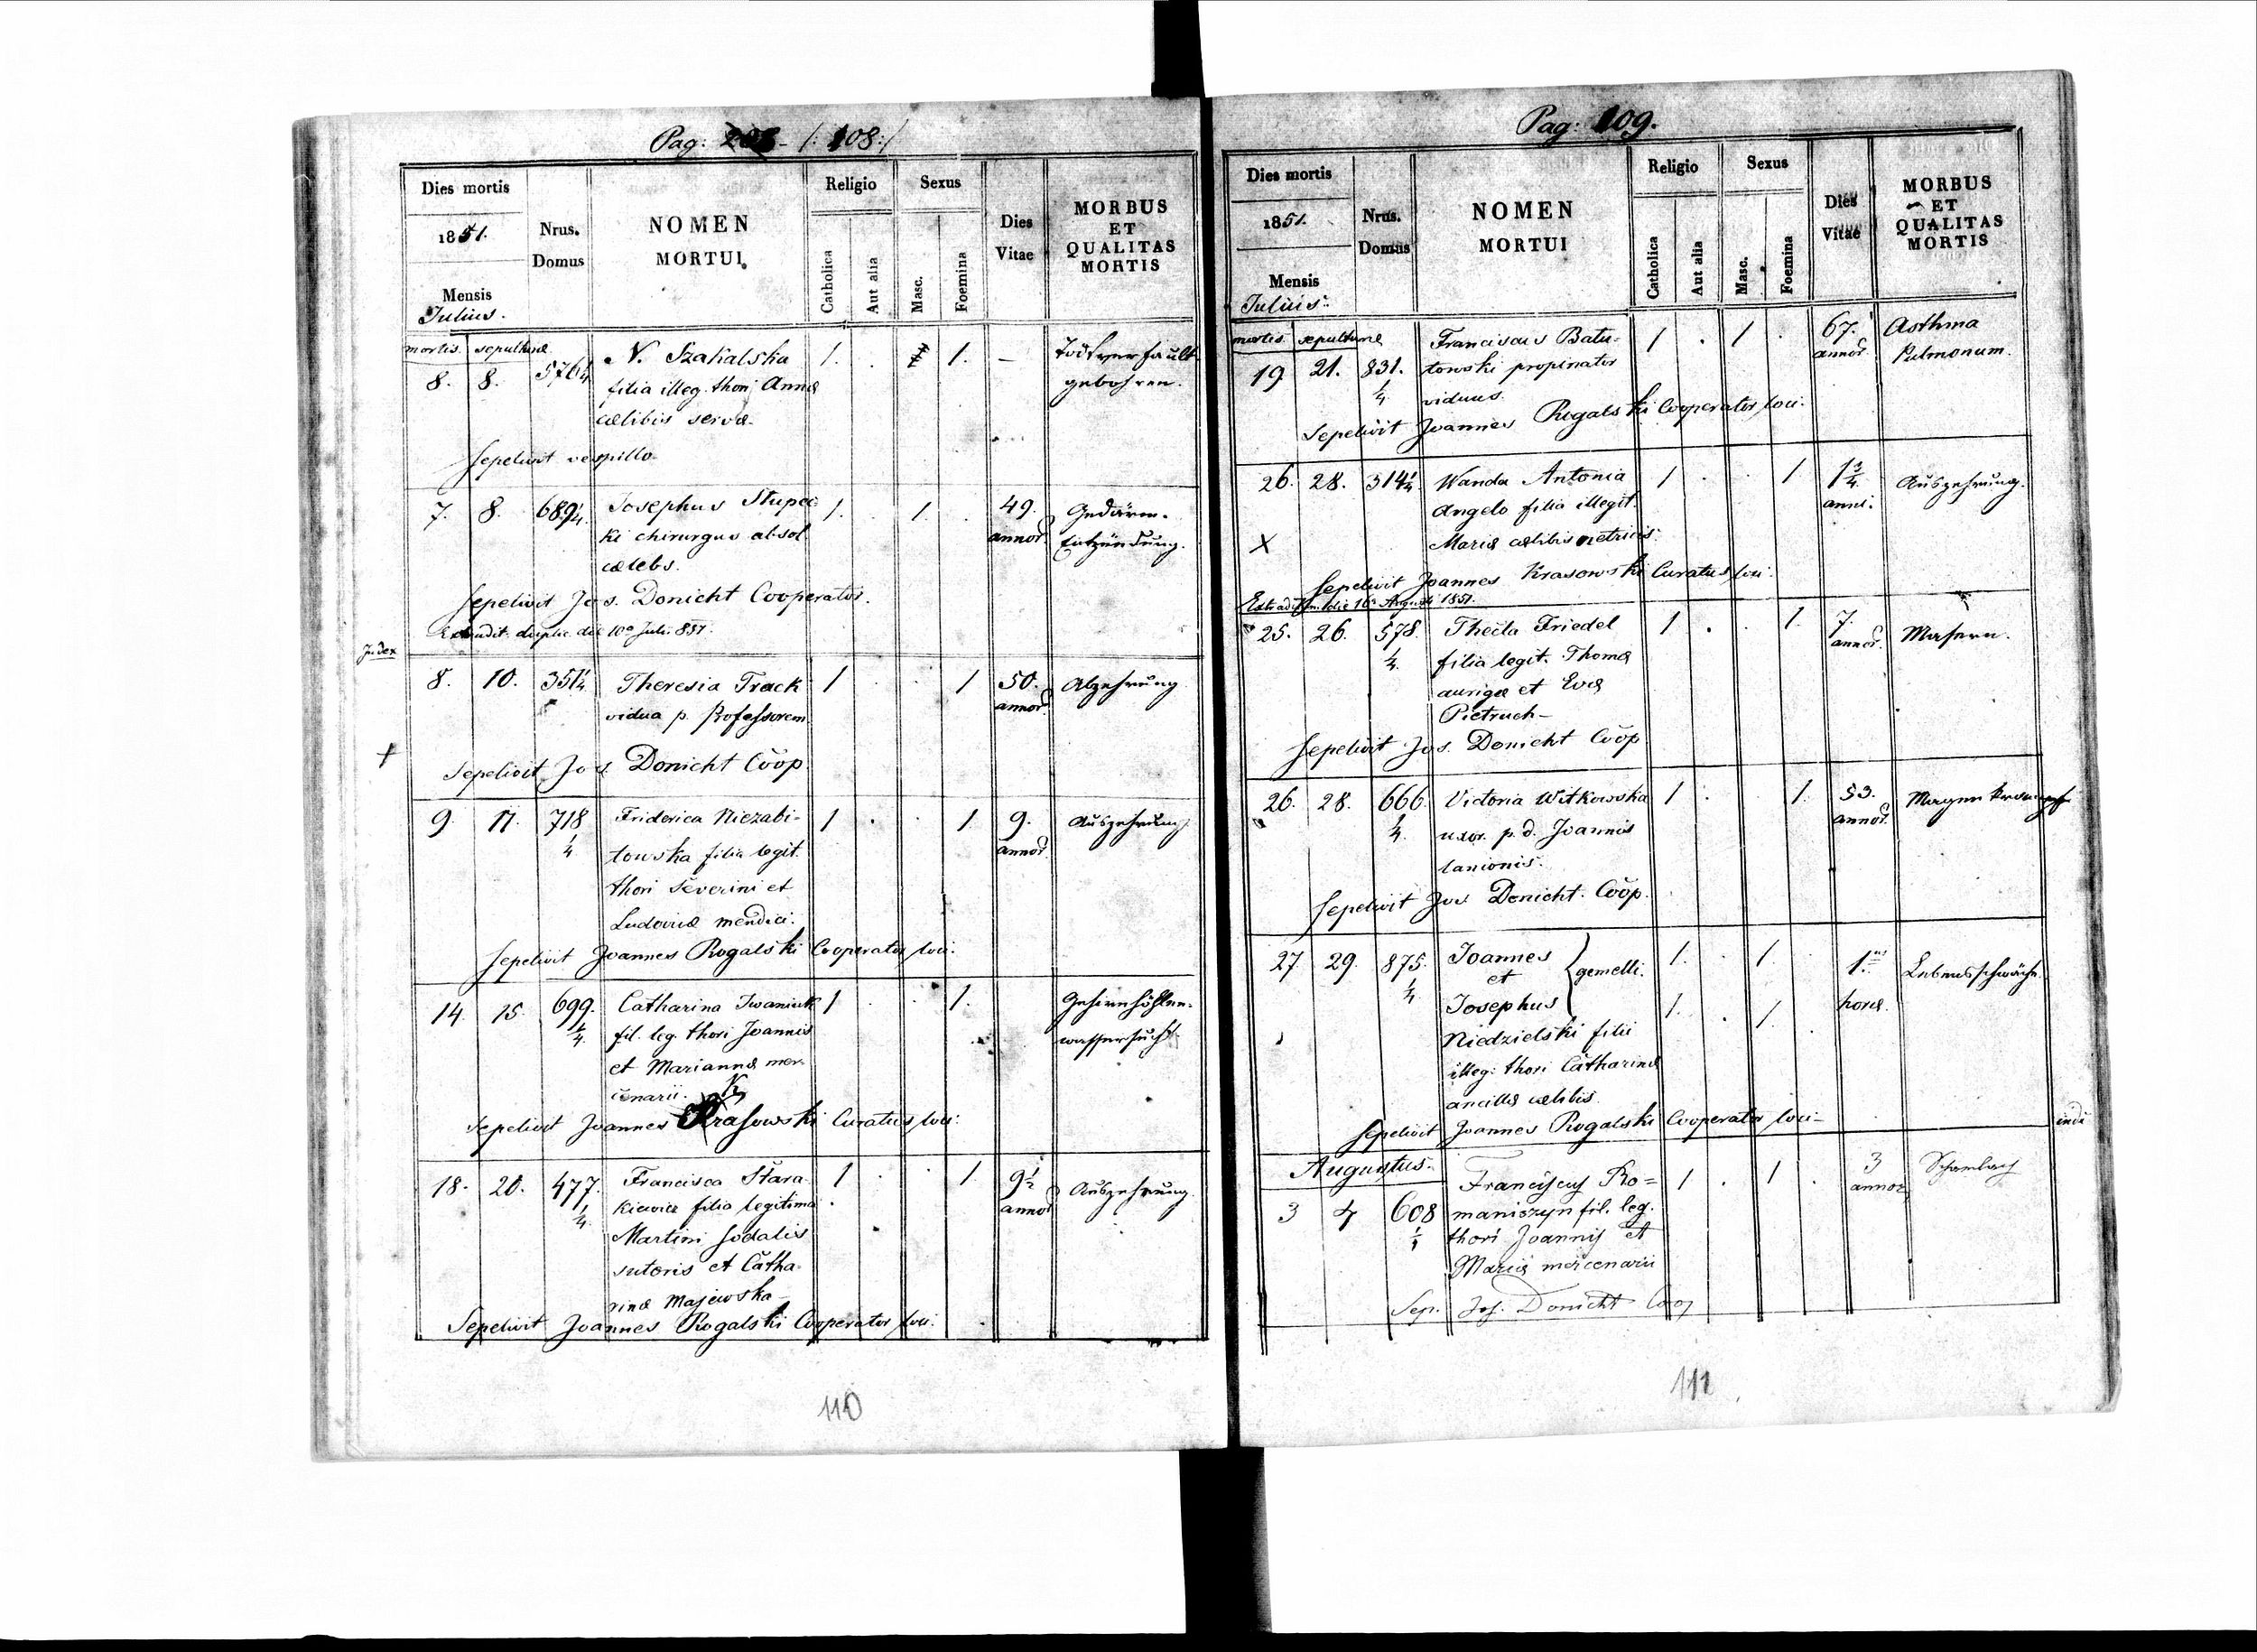 Pag: 108:/
Dies mortis
1851.
Mensis
Julius.
Nrus.
Domus
NOMEN
MORTUI
Religio
Catholica
Aut alia
Sexus
Masc.
Foemina
Dies
Vitae
MORBUS
ET
QUALITAS
MORTIS
mortis sepulturæ
8. 8. 576 1/4 N. Szakalska 1. . 1. – Todtverfault
filia illeg. thori Annæ gebohren.
cælibis servæ
Sepelivit vespillo
7. 8. 689 1/4. Josephus Stupec- 1. . 1. . 49. Gedärm-
ki chirurgus absol. annor. Entzündung.
cælebs.
Sepelivit Jos. Donicht Cooperator.
Extradit. duplic. die 10a Juli 851.
Index
8. 10. 351 1/4 Theresia Track 1 . . 1 50. Abzehrung
vidua p. Professorem annor.
Sepelivit Jos. Donicht Coop
9. 11. 718 Friderica Niezabi- 1 . . 1. 9. Auszehrung
1/4 towska filia legit. annor.
thori Severini et
Ludovicæ mendici.
Sepelivit Joannes Rogalski Cooperator loci.
14. 15. 699. Catharina Iwaniuk 1 . . 1. Gehirnhöhlen-
1/4. fil. leg. thori Joannis wassersucht
et Mariannæ mer-
cenarii.
Sepelivit Joannes Krasowski Curatus loci.
18. 20. 477. Francisca Stara- 1 . . 1 9 1/2 Auszehrung.
1/4. kiewicz filia legitima annor.
Martini sodalis
sutoris et Catha-
rinæ Majewska
Sepelivit Joannes Rogalski Cooperator loci.
110
Pag: 109.
Dies mortis
1851.
Mensis
Julius.
Nrus.
Domus
NOMEN
MORTUI
Religio
Catholica
Aut alia
Sexus
Masc.
Foemina
Dies
Vitae
MORBUS
ET
QUALITAS
MORTIS
mortis sepulturæ
19. 21. 831. Franciscus Batu- 1 . 1 . 67. Asthma
1/4 towski propinator annor. Pulmonum.
viduus.
Sepelivit Joannes Rogalski Cooperator loci.
26. 28. 314 1/4 Wanda Antonia 1 . . 1 1 3/4 Auszehrung.
Angela filia illegit. anni.
X Mariæ cælibis
Sepelivit Joannes Krasowski Curatus loci.
die 16a Augusti 1851.
25. 26. 578. Thecla Friedel 1 . . 1. 7. Masern.
1/4. filia legit. Thomæ annor.
aurigæ et Evæ
Pietruch–
Sepelivit Jos. Donicht Coop
26. 28. 666. Victoria Witkowska 1 . . 1. 53. Magenkrampf
1/4. uxor. p. d. Joannis annor.
lanionis.
Sepelivit Jos. Donicht. Coop.
27. 29. 875. Joannes 1. . 1. . 1. Lebensschwäche
1/4 et gemelli.
Josephus 1. . 1. . horæ
Niedzielski filii
illeg: thori Catharinæ
ancillæ cælibis.
Sepelivit Joannes Rogalski Cooperator loci–
Augustus.
3 4 608 Franciscus Ro= 1 . 1 . 3
1/1 maniszyn fil. leg. annor.
thori Joannis et
Mariæ mercenarii
Sep. Jos. Donicht Coop
111